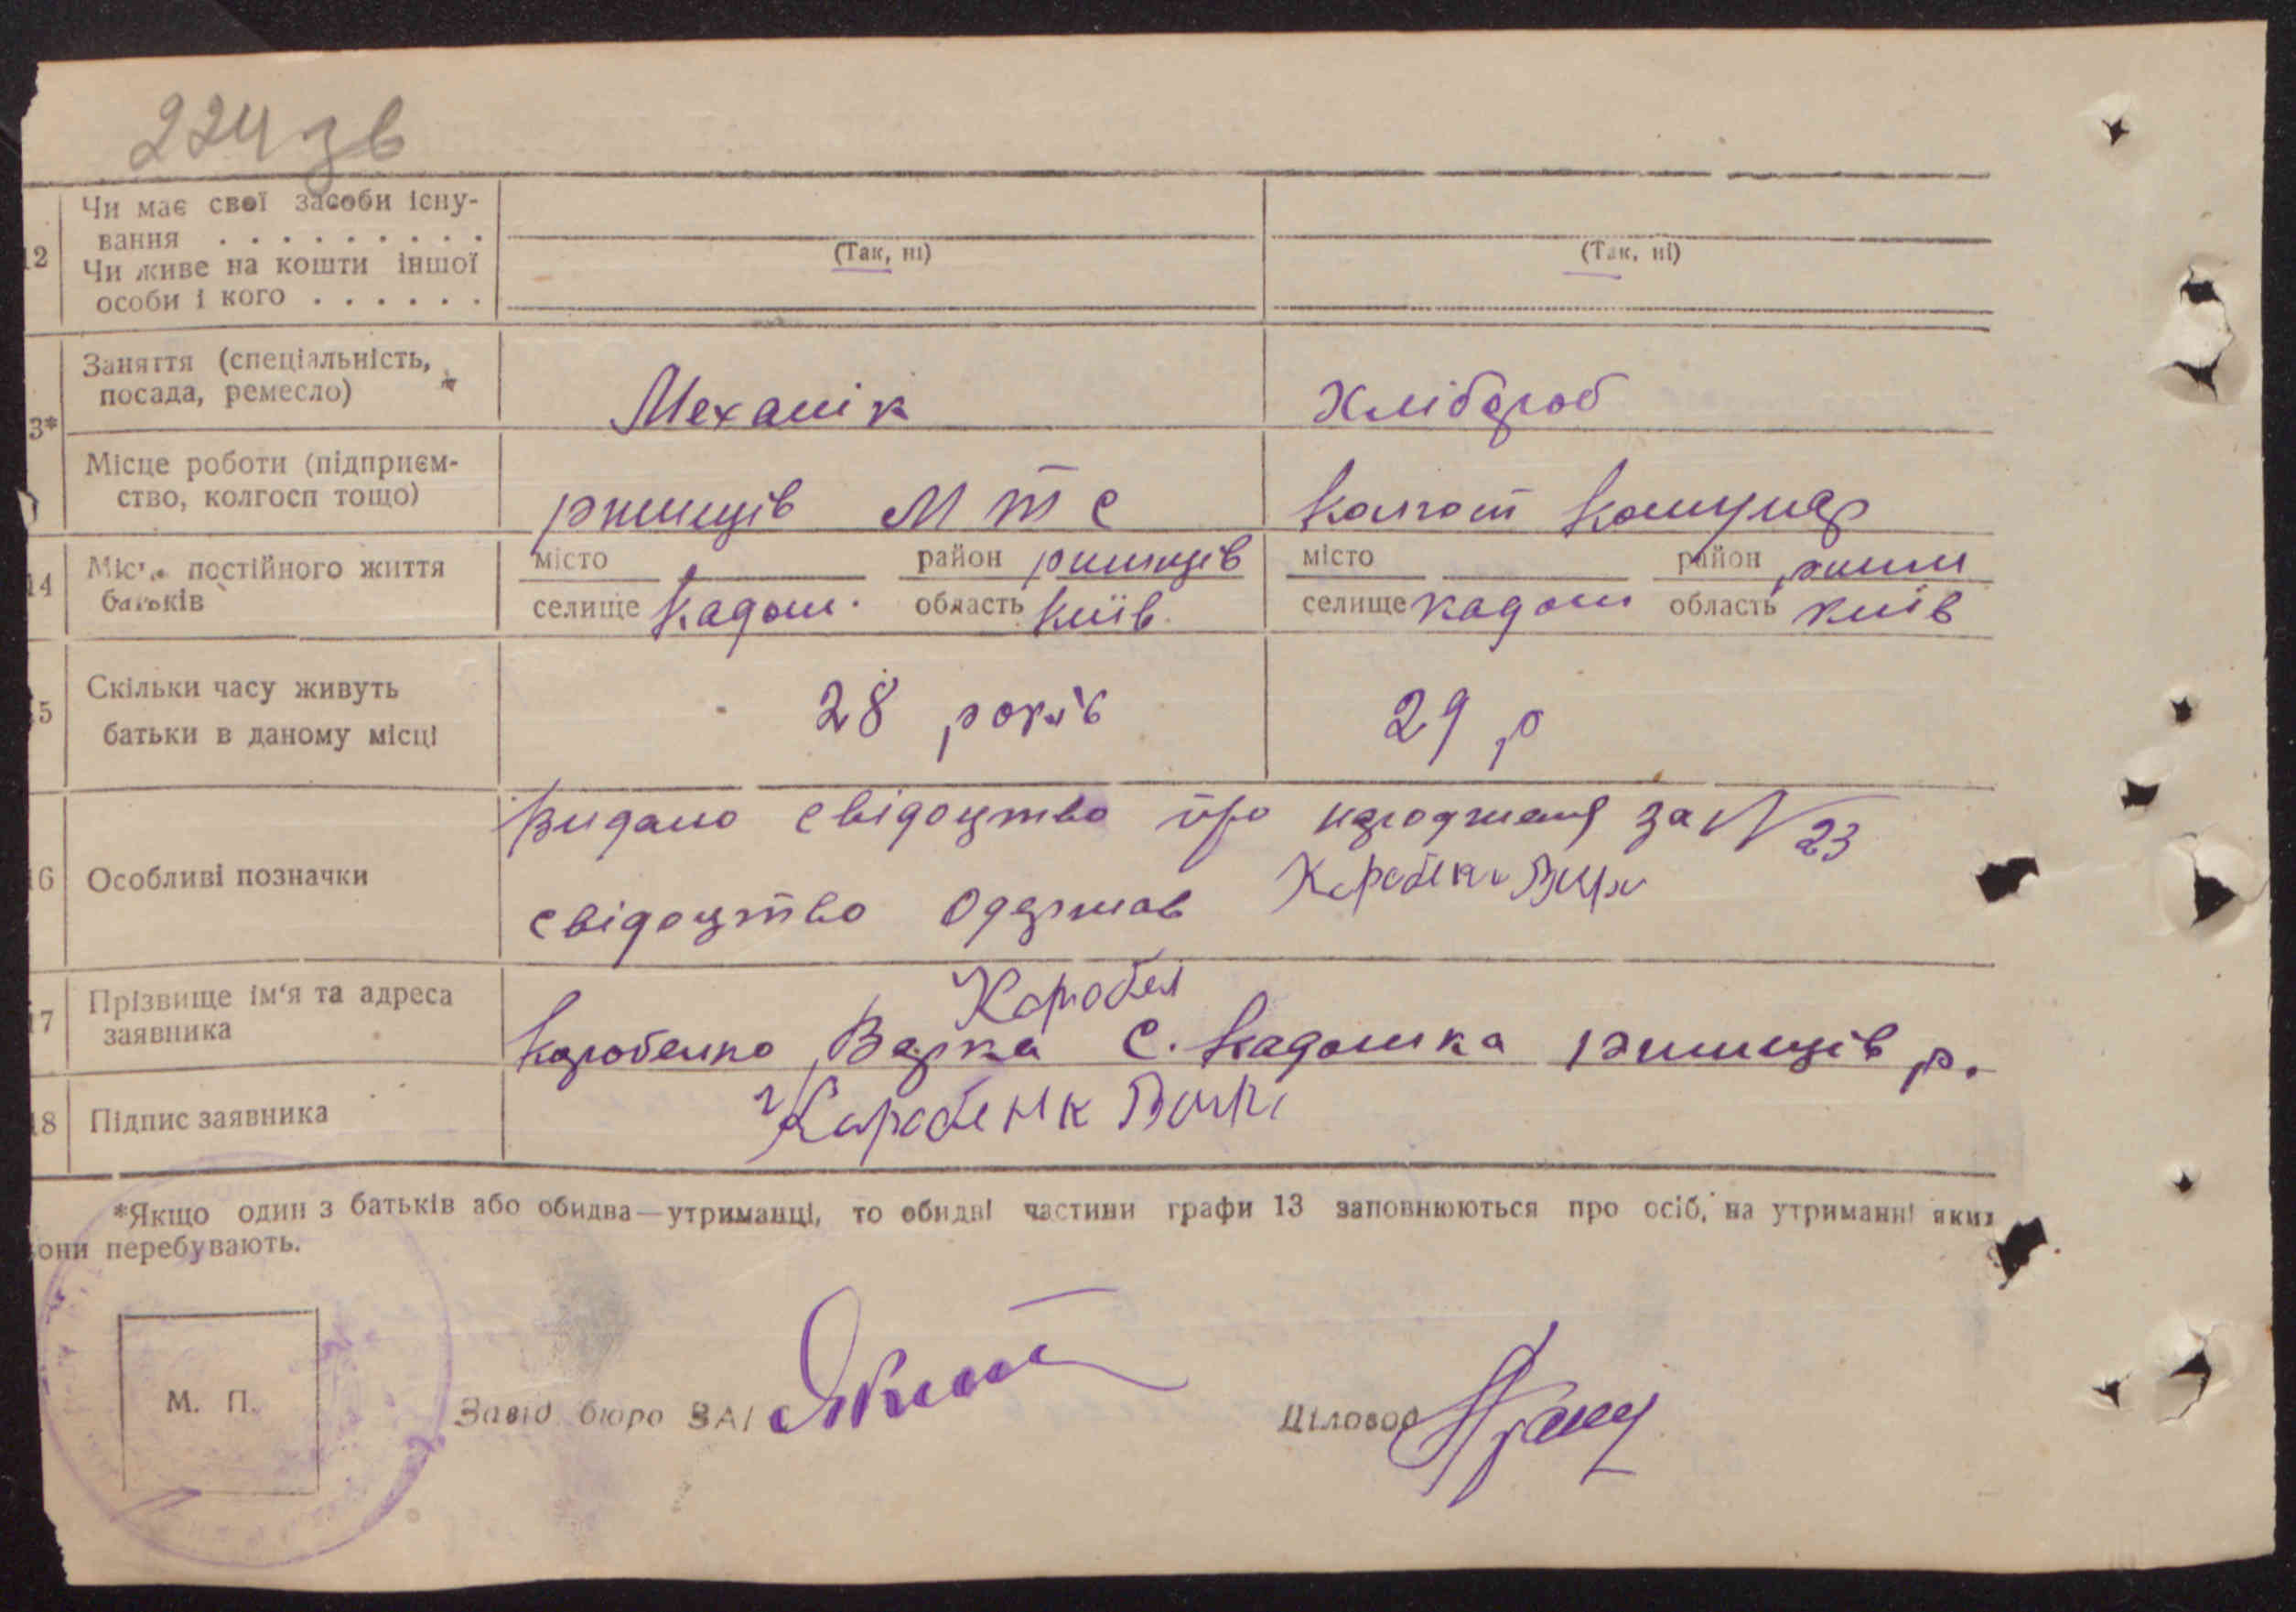 224 зв
12 Чи має свої засоби існу-
вання . . . . . . . . .
(Так, ні) (Так, ні)
Чи живе на кошти іншої
особи і кого . . . . . .
3* Заняття (спеціальність,
посада, ремесло)
Механік Хлібороб
Місце роботи (підприєм-
ство, колгосп тощо)
ржищів М Т С Колгосп Комунар
14 Місце постійного життя
батьків
місто район ржищів місто район ржищ
селище Кадом. область Київ. селище Кадом область Київ
5 Скільки часу живуть
батьки в даному місці
28 років 29 р
Видано свідоцтво про народження за N 23
16 Особливі позначки
свідоцтво одержав
17 Прізвище ім‘я та адреса
заявника
Коробенко Варка С. Кадомка ржищів р.
18 Підпис заявника
*Якщо один з батьків або обидва—утриманці, то обидві частини графи 13 заповнюються про осіб, на утриманні яких
они перебувають.
М. П.
Завід. бюро ЗАГ
Діловод